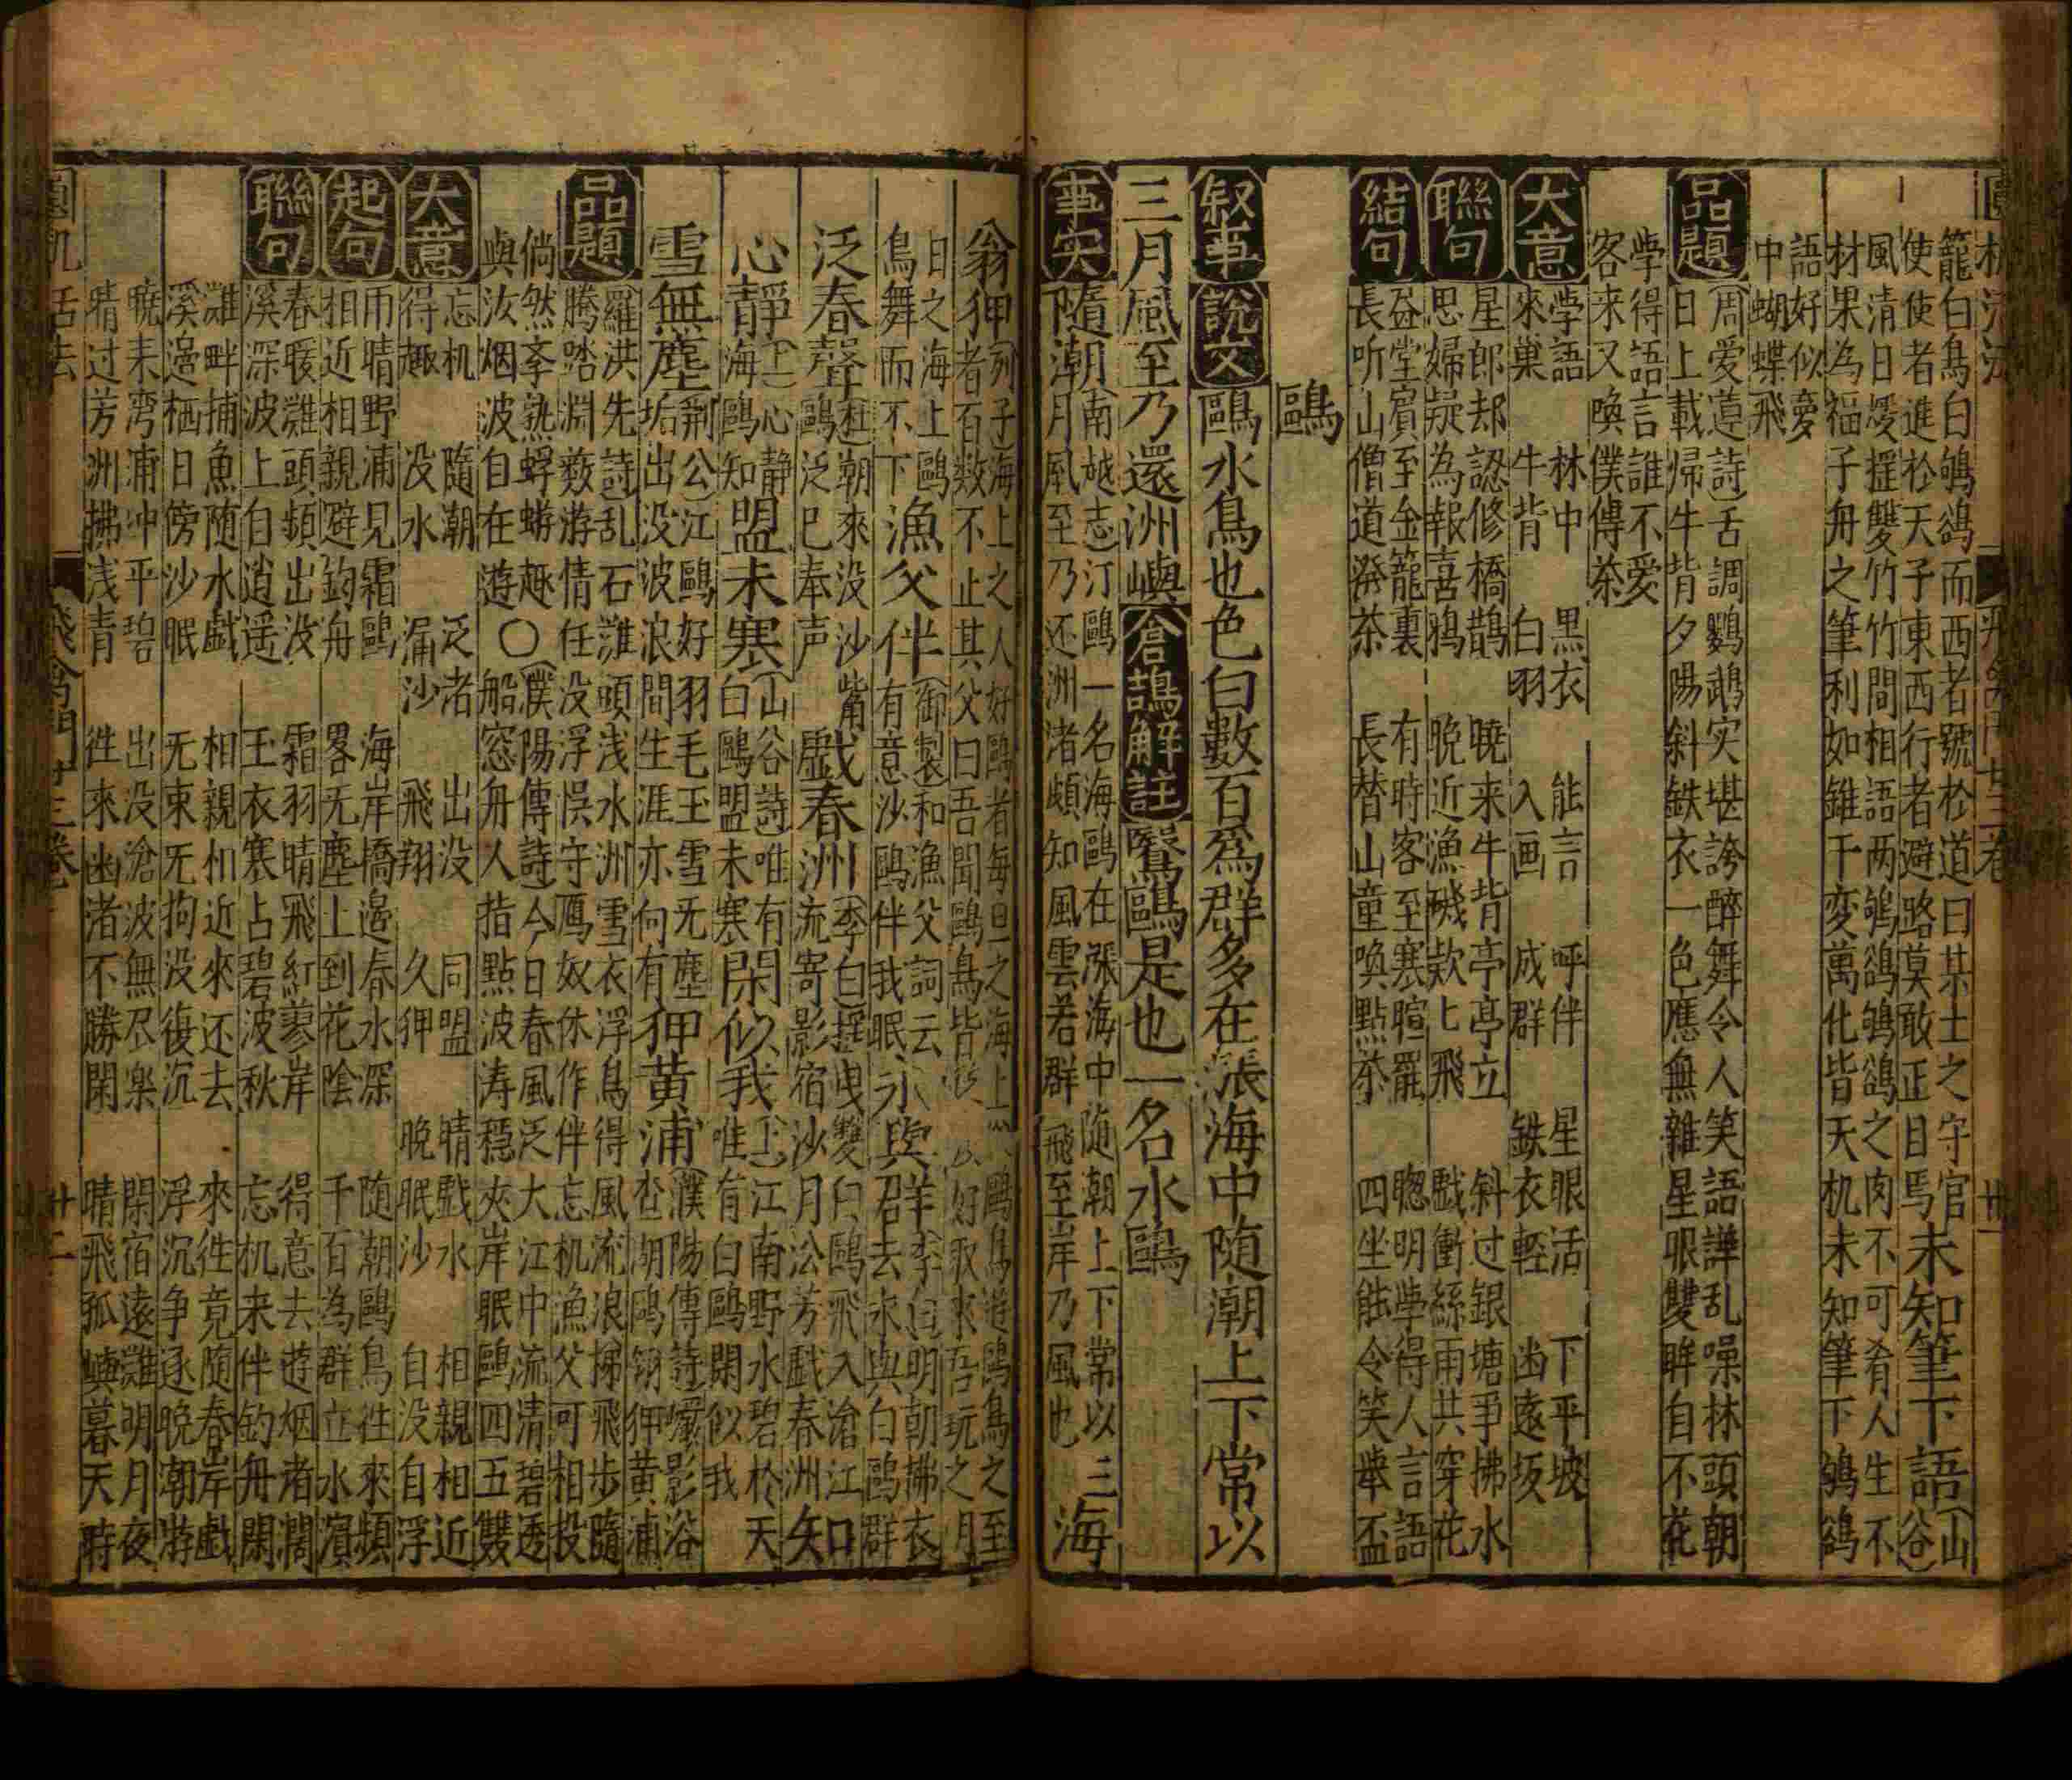 籠白鳥白鴝鵒而西者號於道曰某士之守官
使使者進於天子東西行者避路莫敢正目焉
未知筆下語
山谷
風清日煖揺雙竹竹間相語两鴝鵒鴝鵒之肉不可肴人生不
材果為福子舟之筆利如錐千変萬化皆天机未知筆下鴝鵒
語好似愛
中蝴蝶飛
品題
周爱莲詩舌調鸚鵡实堪誇醉舞令人笑語譁乱噪林頭朝
日上載帰牛背夕陽斜鉄衣一色應無雜星眼雙眸自不花
学得語言誰不爱
客来又喚僕傳茶
大意
学語 林中 黒衣 能言 呼伴 星眼活 下平坡
來巢 牛背 白羽 入画 成群 鉄衣輕 幽遠坂
聯句
星郎却認修橋鵲 曉来牛背亭亭立 斜过銀塘爭拂水
思婦疑為報喜鴉 晩近漁磯欵匕飛 戯衝絲雨共穿花
結句
益堂賓至金籠裏 有時客至塞暄罷 聰明学得人言語
長听山僧道溌茶 長替山童喚點茶 四坐能令笑舉盃
鷗
叙事
說文
鷗水鳥也色白數百爲群多在漲海中随潮上下常以
三月風至乃還洲嶼
倉鵠解註
鷖鷗是也一名水鷗
事実
隨潮
南越志汀鷗一名海鷗在漲海中随潮上下常以三
月風至乃还洲渚頗知風雲若群飛至岸乃風也
海
翁狎
列子海上之人好鷗者每旦之海上
鷗鳥遊鷗鳥之至
者百数不止其父曰吾聞鷗鳥皆
好取來吾玩之明
日之海上鷗
鳥舞而不下
漁父伴
御製和漁父詞云
有意沙鷗伴我眠
永與群
李白明朝拂衣
君去永與白鷗群
泛春聲
杜朝來没沙觜
鷗泛已奉声
戯春洲
李白揺曳雙白鷗飛入滄江
流寄影宿沙月沿芳戯春洲
口知
心靜
上心静
海鷗知
盟未寒
山谷詩唯有
白鷗盟未寒
閑似我
上江南野水碧於天
唯有白鷗閑似我
雪無塵
荆公江鷗好羽毛玉雪无塵
垢出没波浪間生涯亦何有
狎黄浦
濮陽傳詩纖影浴
查湖鷗翎狎黄浦
品題
羅洪先詩乱石灘頭浅水洲雪衣浮鳥得風流浪梯飛步隨
騰踏淵藪游情任没浮悮守鴈奴休作伴忘机漁父可相投
倘然李熟蜉蝣趣〇濮陽傳詩今日春風泛大江中流清碧透
與汝烟波自在遊 船窓舟人指點波涛穏夾岸眠鷗四五雙
大意
忘机 隨朝 泛渚 出没 同盟 晴戯水 相親相近
得趣 没水 漏沙 飛翔 久狎 晩眠沙 自没自浮
起句
雨晴野浦見霜鷗 海岸橋邉春水深 随朝鷗鳥徃來頻
相近相親避釣舟 畧无塵上到花陰 千百為群立水濱
聯句
春暖灘頭頻出没 霜羽晴飛紅蓼岸 得意去遊烟渚濶
溪深波上自逍遥 玉衣寒占碧波秋 忘机来伴釣舟閑
灘畔捕魚随水戯 相親相近來还去 來徃竟随春岸戯
溪邉栖日傍沙眠 无束无拘没復沉 浮沉争逐晩潮游
曉来湾浦冲平碧 出没滄波無尽楽 閑宿遠灘明月夜
晴过芳洲拂浅青 徃來幽渚不勝閑 晴飛孤嶼暮天時